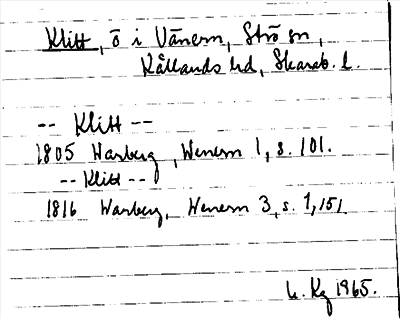 Klitt, ö i Vänern, Strö sn,
Kållands hd, Skarab. l.
-- Klitt --
1805 Warberg, Wenern 1, s. 101.
-- Klitt --
1816 Warberg, Wenern 3, s. 1, 151
Kg 1965.